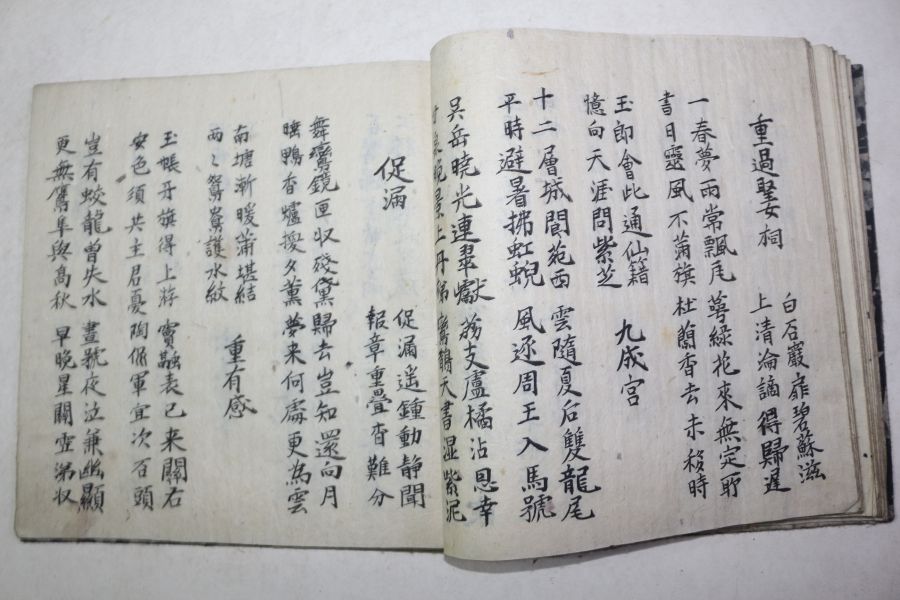 重過聖女祠
白石巖扉碧蘇滋
上清淪謫得歸遲
一春夢雨常飄瓦 萼綠花來無定所
書日靈風不蒲旗 杜蘭香去未移時
玉郎會此通仙籍
憶向天涯問紫芝
九成宮
十二層城閬苑西 雲隨夏后雙龍尾
平時避暑拂虹蜺 風逐周王入馬號
吳岳曉光連翠巘 荔支盧橘沾恩幸
晚景上丹梯 鸞鵲天書湿紫泥
促漏
促漏遥鍾動静聞
報章重疊杳難分
舞鸞鏡匣収殘黛 歸去豈知還向月
睡鴨香爐換夕薰 夢来何處更為雲
南塘漸暖蒲堪結
両〻鴛鴦護水紋
重有感
玉帳牙旗得上游 竇融表已来關右
安危須共主君憂 陶侃軍宜次石頭
豈有蛟龍曽失水 晝號夜泣兼幽顯
更無鷹隼與高秋 早晩星關雪涕収